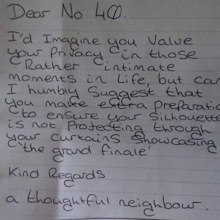 Dear No 40.
I'd Imagine you value
your privacy in those
'Rather intimate
moments in life, but can
I humbly suggest that
you make extra preparation
to ensure your silhouette
is not Protecting through
your curtains showcasing
'the grand finale'
Kind Regards
a thoughtful neighbour.